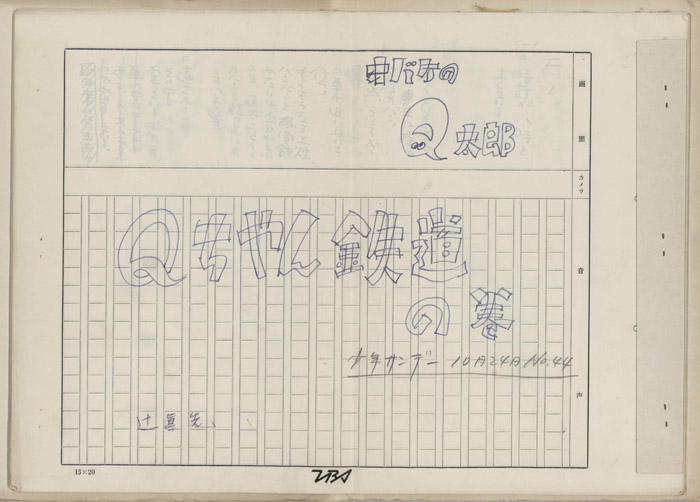 オバケの
Q太郎
Qちゃん鉄道
の巻
少年サンデー 10月24日 No.44
辻真先
画面
カメラ
音
声
15×20
TBS